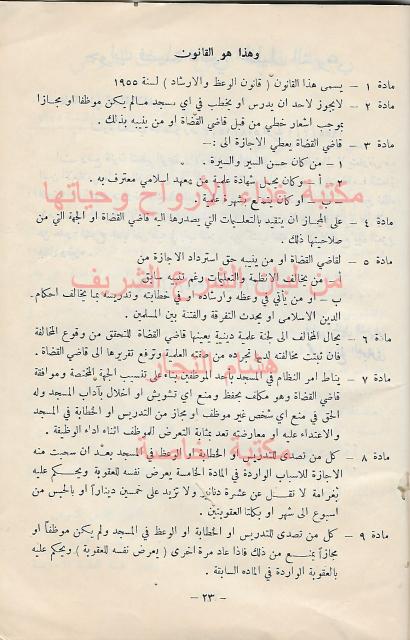 وهذا هو القانون
مادة ١ – يسمى هذا القانون ( قانون الوعظ والارشاد ) لسنة ١٩٥٥
مادة ٢ – لايجوز لاحد ان يدرس او يخطب في اي مسجد مالم يكن موظفا او مجازا
بموجب اشعار خطي من قبل قاضي القضاة او من ينيبه بذلك .
مادة ٣ – قاضي القضاة يعطي الاجازة الى :–
١ – من كان حسن السير والسيرة .
٢ – أ – وكان يحمل شهادة علمية من معهد اسلامي معترف به .
ب – او كان يتمتع بشهرة علمية .
مكتبة غذاء الأرواح وحياتها
مادة ٤ – على المجاز ان يتقيد بالتعليمات التي يصدرها اليه قاضي القضاة او الجهة التي من
صلاحيتها ذلك .
مادة ٥ – لقاضي القضاة او من ينيبه حق استرداد الاجازة من
أ – من يخالف الانظمة والتعليمات رغم تنبيه سابق
من لبان الشرع الشريف
ب – او من يأتي في وعظه وارشاده او في خطابته وتدريسه بما يخالف احكام
الدين الاسلامي او يحدث التفرقة والفتنة بين المسلمين .
مادة ٦ – يحال المخالف الى لجنة علمية دينية يعينها قاضي القضاة للتحقق من وقوع المخالفة
فان ثبتت مخالفته لما ذكر تجرده من صفته العلمية وترفع تقريرها الى قاضي القضاة .
هشام النجار
مادة ٧ – يناط امر النظام في المسجد باحد الموظفين بناء على تنسيب الجهة المختصة وموافقة
قاضي القضاة وهو مكلف بحفظ ومنع اي تشويش او اخلال بآداب المسجد وله
الحق في منع اي شخص غير موظف او مجاز من التدريس او الخطابة في المسجد
والاعتداء عليه او معارضته تعد بمثابة التعرض للموظف اثناء اداء الوظيفة .
مكتبة
مادة ٨ – كل من تصدى للتدريس او الخطابة او الوعظ في المسجد بعد ان سحبت منه
الاجازة للاسباب الواردة في المادة الخامسة يعرض نفسه للعقوبة ويحكم عليه
بغرامة لا تقل عن عشرة دنانير ولا تزيد على خمسين ديناراً او بالحبس من
اسبوع الى شهر او بكلتا العقوبتين .
مادة ٩ – كل من تصدى للتدريس او الخطابة او الوعظ في المسجد ولم يكن موظفاً او
مجازاً يمنع من ذلك فاذا عاد مرة اخرى ( يعرض نفسه للعقوبة ) ويحكم عليه
بالعقوبة الواردة في الماده السابقة .
– ٢٣ –